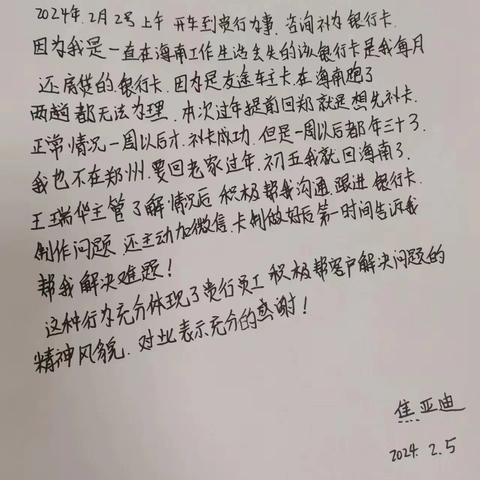 2024年.2月2号上午 开车到贵行办事.咨询补办银行卡.
因为我是一直在海南工作生活丢失的该银行卡是我每月
还房贷的银行卡.因为是友途车主卡在海南跑了
两趟都无法办理.本次过年提前回郑就是想先补卡.
正常情况一周以后才补卡成功.但是一周以后都年三十了.
我也不在郑州.要回老家过年.初五我就回海南了.
王瑞华主管了解情况后 积极帮我沟通.跟进银行卡.
制作问题.还主动加微信.卡制做好后第一时间告诉我
帮我解决难题!
这种行为充分体现了贵行员工积极帮客户解决问题的
精神风貌.对此表示充分的感谢!
焦亚迪
2024.2.5